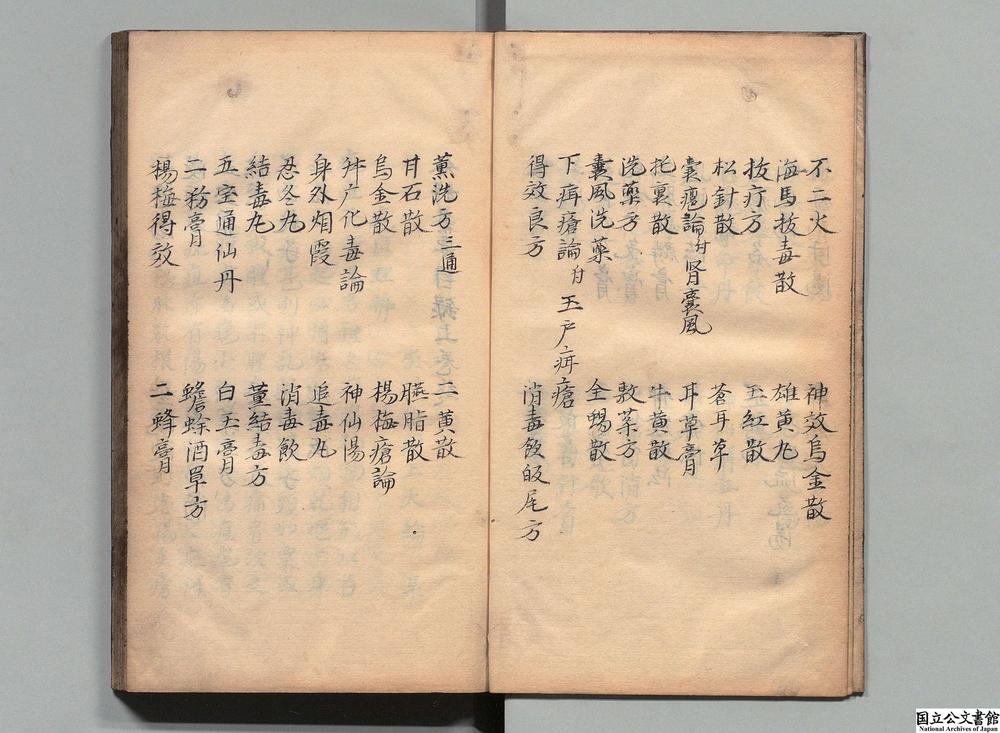 不二火
神效烏金散
海馬拔毒散
雄黃丸
拔疔方
玉紅散
松針散
蒼耳草
囊癰論 附 腎囊風
耳草膏
托裏散
牛黃散
洗藥方
敷藥方
囊風洗藥
全蝎散
下疳瘡論 附 玉戶疳瘡
得效良方
消毒飲皈尾方
薰洗方 三通
二黃散
甘石散
臙脂散
烏金散
楊梅瘡論
升广化毒論
神仙湯
身外烟霞
追毒丸
忍冬丸
消毒飲
結毒丸
薑結毒方
五宝通仙丹
白玉膏
二務膏
蟾蜍酒單方
楊梅得效
二蜂膏
国立公文書館
National Archives of Japan